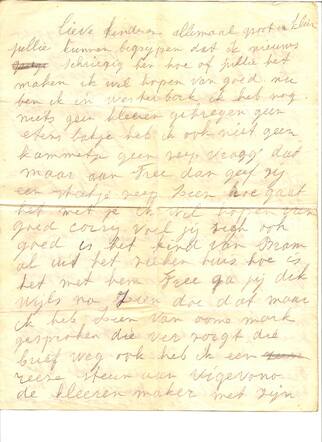 Lieve kinderen allemaal groot en klein
jullie kunnen begrypen dat ik nieuws
schiereg ben hoe of jullie het
maken ik wil hopen van goed nu
ben ik in westerbork ik heb nog
niets geen kleeren gekregen geen
etens bakje heb ik ook niet geen
kammetje geen zeep vraag dat
maar aan Free dan geef zy
een stukje zeep Sien hoe gaat
het met je ik wil hoppen van
goed corry voel jy zigh ook
goed is het kind van Bram
al uit het zieken huis hoe is
het met hem Free ga jy dik
wyls na Sien doe dat maar
ik heb Sien van oome mark
gesproken die ver zorgt die
brief weg ook heb ik een
reize steun aan vigevono
de kleeren maker met zyn